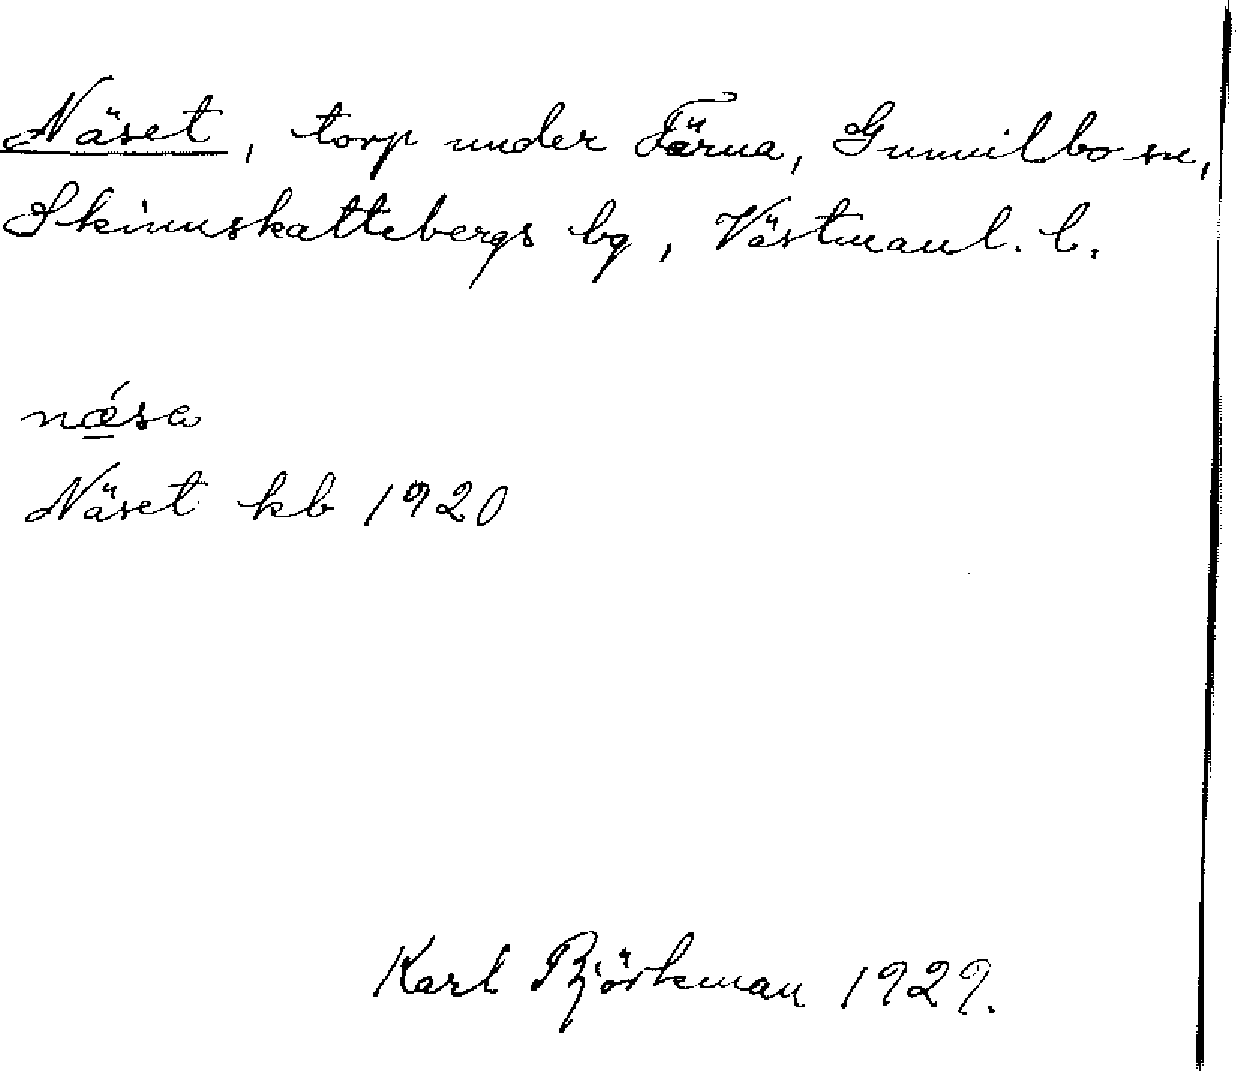 Näset, torp under Färna, Gunnilbo sn,
Skinnskattebergs bg, Västmanl. l.
nǽ̲sa
Näset kb 1920
Karl Björkman 1929.